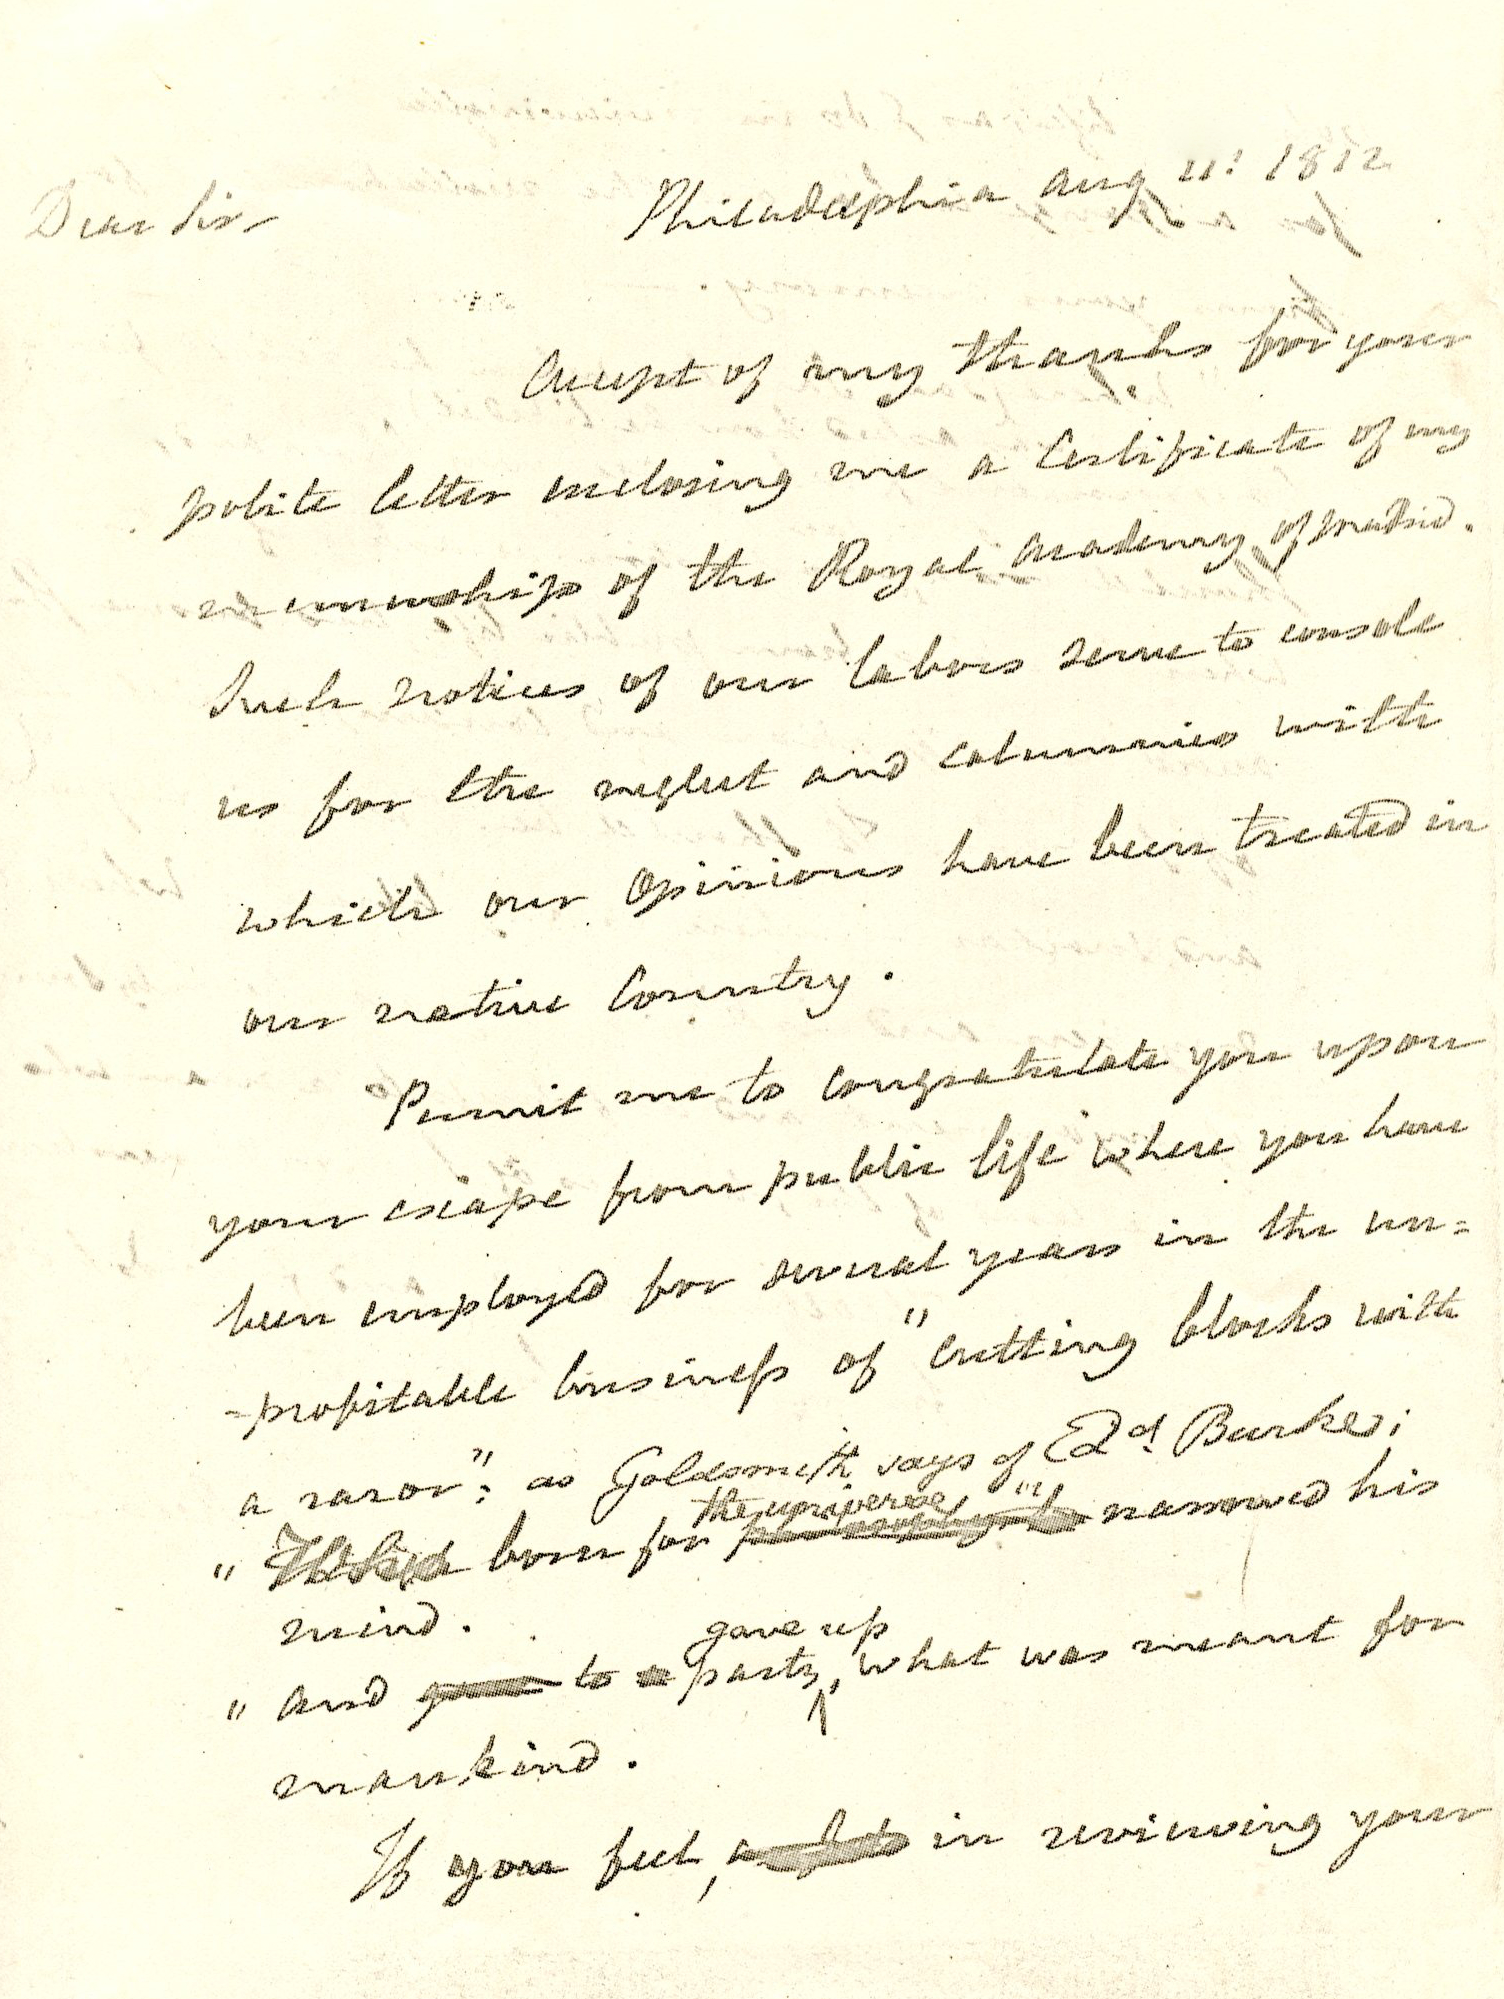 Dear Sir
Philadelphia Aug 11: 1812
Accept of my thanks for your
polite letter enclosing me a Certificate of my
membership of the Royal Academy of Madrid.
Such notices of our labors serve to console
us for the neglect and calumnies with
which our Opinions have been treated in
our native Country.
Permit me to congratulate you upon
your escape from public life where you have
been employed for several years in the un=
=profitable business of "cutting blocks with
a razor": as Goldsmith says of Ed: Burke;
the universe
" born for narrowed his
mind.
gave up
" And to party, what was meant for
mankind.
If you feel, in reviewing your